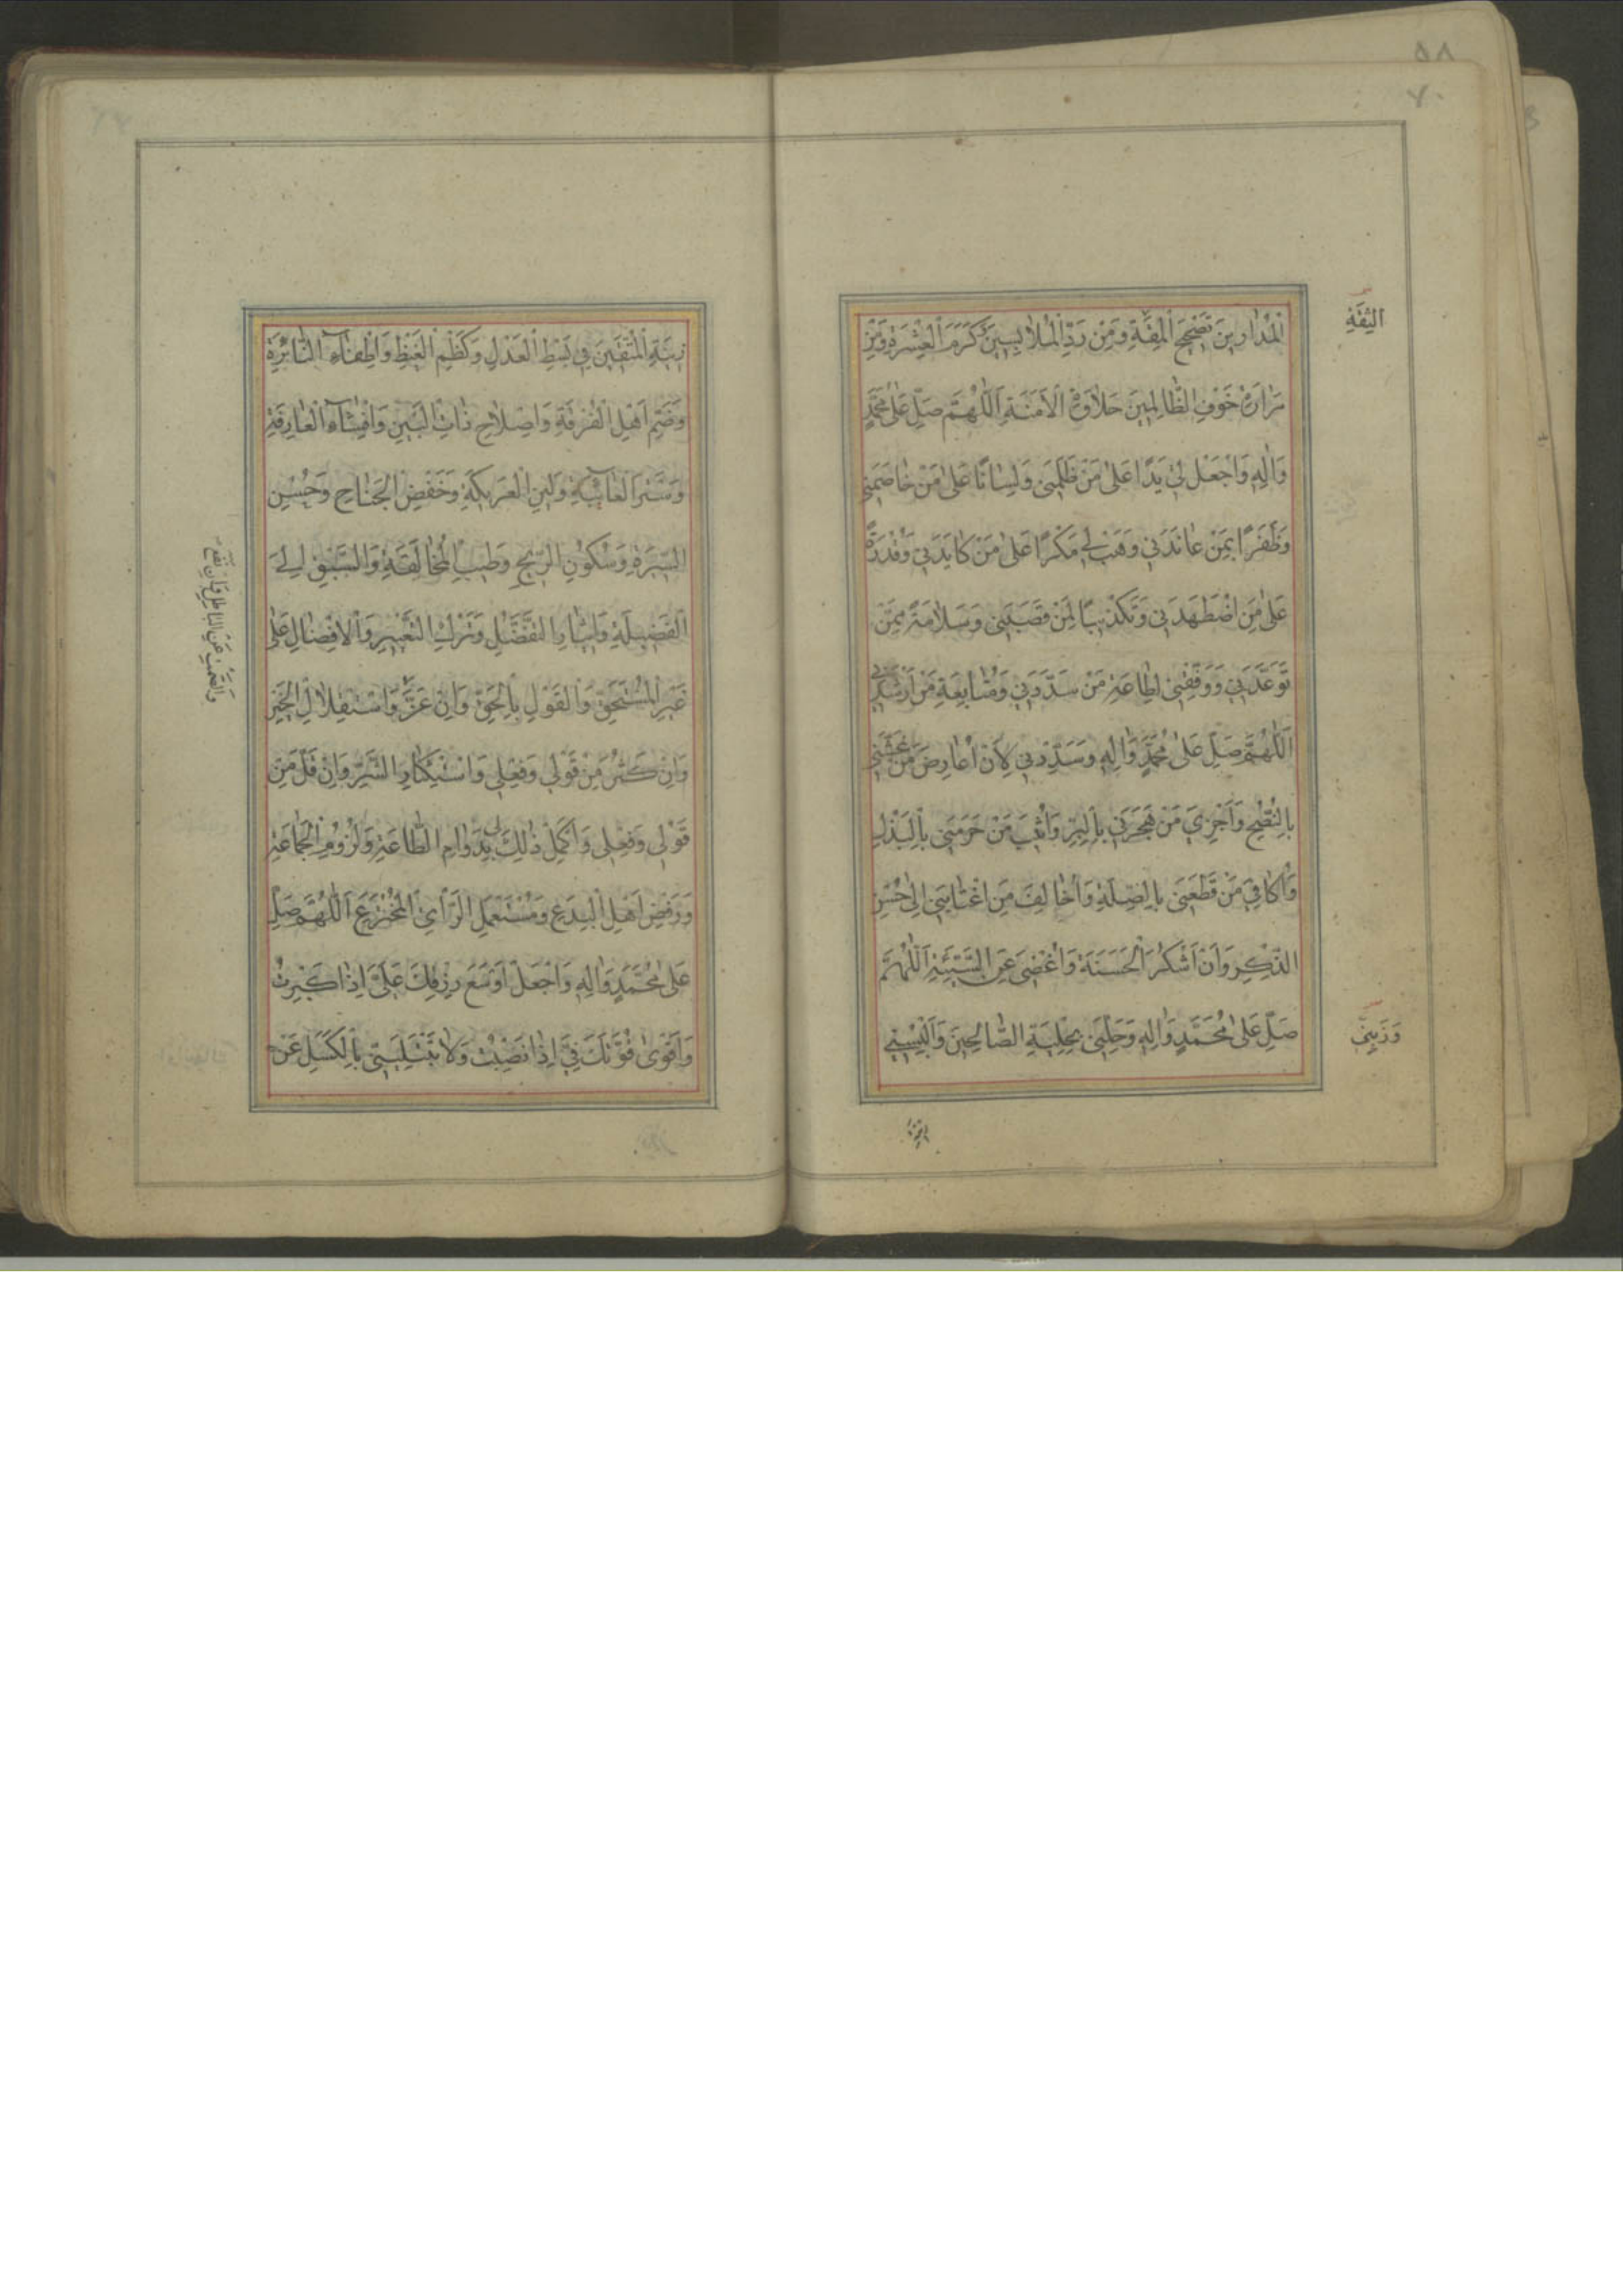 الْمُدَارِينَ تَصْحِيحَ الْمِقَةِ وَمِنْ رَدِّ الْمُلَابِسِينَ كَرَمَ الْعِشْرَةِ وَمِنْ
مَرَارَةِ خَوْفِ الظَّالِمِينَ حَلَاوَةَ الْأَمَنَةِ اَللّٰهُمَّ صَلِّ عَلَى مُحَمَّدٍ
وَاٰلِهِ وَاجْعَلْ لِي يَدًا عَلَى مَنْ ظَلَمَنِي وَلِسَانًا عَلَى مَنْ خَاصَمَنِي
وَظَفَرًا بِمَنْ عَانَدَنِي وَهَبْ لِي مَكْرًا عَلَى مَنْ كَايَدَنِي وَقُدْرَةً
عَلَى مَنِ اضْطَهَدَنِي وَتَكْذِيبًا لِمَنْ قَصَبَنِي وَسَلَامَةً مِمَّنْ
تَوَعَّدَنِي وَوَفِّقْنِي لِطَاعَةِ مَنْ سَدَّدَنِي وَمُتَابَعَةِ مَنْ أَرْشَدَنِي
اَللّٰهُمَّ صَلِّ عَلَى مُحَمَّدٍ وَاٰلِهِ وَسَدِّدْنِي لِأَنْ أُعَارِضَ مَنْ غَشَّنِي
بِالنُّصْحِ وَأَجْزِيَ مَنْ هَجَرَنِي بِالْبِرِّ وَأُثِيبَ مَنْ حَرَمَنِي بِالْبَذْلِ
وَأُكَافِيَ مَنْ قَطَعَنِي بِالصِّلَةِ وَأُخَالِفَ مَنِ اغْتَابَنِي إِلَى حُسْنِ
الذِّكْرِ وَأَنْ أَشْكُرَ الْحَسَنَةَ وَأُغْضِيَ عَنِ السَّيِّئَةِ اَللّٰهُمَّ
صَلِّ عَلَى مُحَمَّدٍ وَاٰلِهِ وَحَلِّنِي بِحِلْيَةِ الصَّالِحِينَ وَأَلْبِسْنِي
الثِّقَةِ
وَزَيِّنِّي
٧٠
٥٨
زِينَةَ الْمُتَّقِينَ فِي بَسْطِ الْعَدْلِ وَكَظْمِ الْغَيْظِ وَإِطْفَاءِ النَّائِرَةِ
وَضَمِّ أَهْلِ الْفُرْقَةِ وَإِصْلَاحِ ذَاتِ الْبَيْنِ وَإِفْشَاءِ الْعَارِفَةِ
وَسَتْرِ الْعَائِبَةِ وَلِينِ الْعَرِيكَةِ وَخَفْضِ الْجَنَاحِ وَحُسْنِ
السِّيرَةِ وَسُكُونِ الرِّيحِ وَطِيبِ الْمُخَالَقَةِ وَالسَّبْقِ إِلَى
الْفَضِيلَةِ وَإِيثَارِ التَّفَضُّلِ وَتَرْكِ التَّعْيِيرِ وَالْإِفْضَالِ عَلَى
غَيْرِ الْمُسْتَحِقِّ وَالْقَوْلِ بِالْحَقِّ وَإِنْ عَزَّ وَاسْتِقْلَالِ الْخَيْرِ
وَإِنْ كَثُرَ مِنْ قَوْلِي وَفِعْلِي وَاسْتِكْثَارِ الشَّرِّ وَإِنْ قَلَّ مِنْ
قَوْلِي وَفِعْلِي وَأَكْمِلْ ذٰلِكَ لِي بِدَوَامِ الطَّاعَةِ وَلُزُومِ الْجَمَاعَةِ
وَرَفْضِ أَهْلِ الْبِدَعِ وَمُسْتَعْمِلِ الرَّأْيِ الْمُخْتَرَعِ اَللّٰهُمَّ صَلِّ
عَلَى مُحَمَّدٍ وَاٰلِهِ وَاجْعَلْ أَوْسَعَ رِزْقِكَ عَلَيَّ إِذَا كَبِرْتُ
وَأَقْوَى قُوَّتِكَ فِيَّ إِذَا نَصِبْتُ وَلَا تَبْتَلِيَنِّي بِالْكَسَلِ عَنْ
وَالصَّمْتِ عَنِ الْبَاطِلِ وَإِنْ نَفَعَ